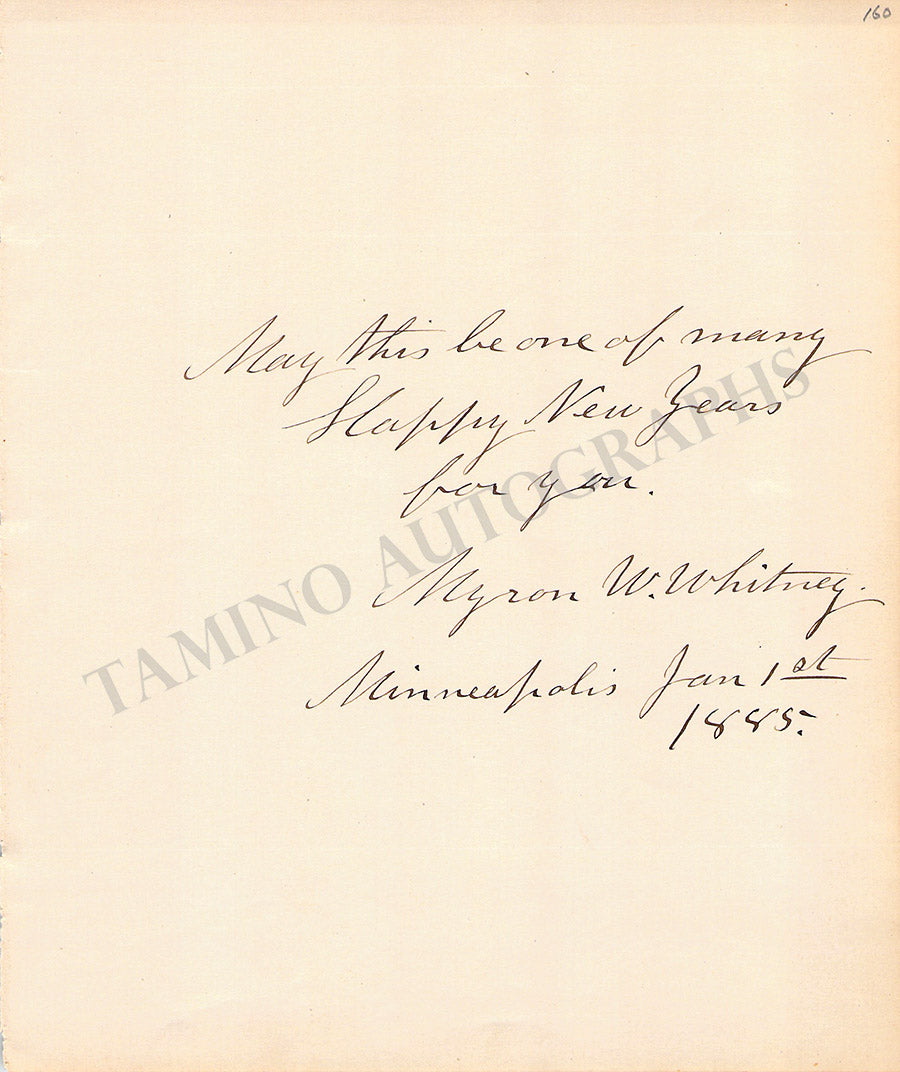 160
May this be one of many
Happy New Years
for you.
Myron W. Whitney.
Minneapolis Jan 1st
1885.
TAMINO AUTOGRAPHS